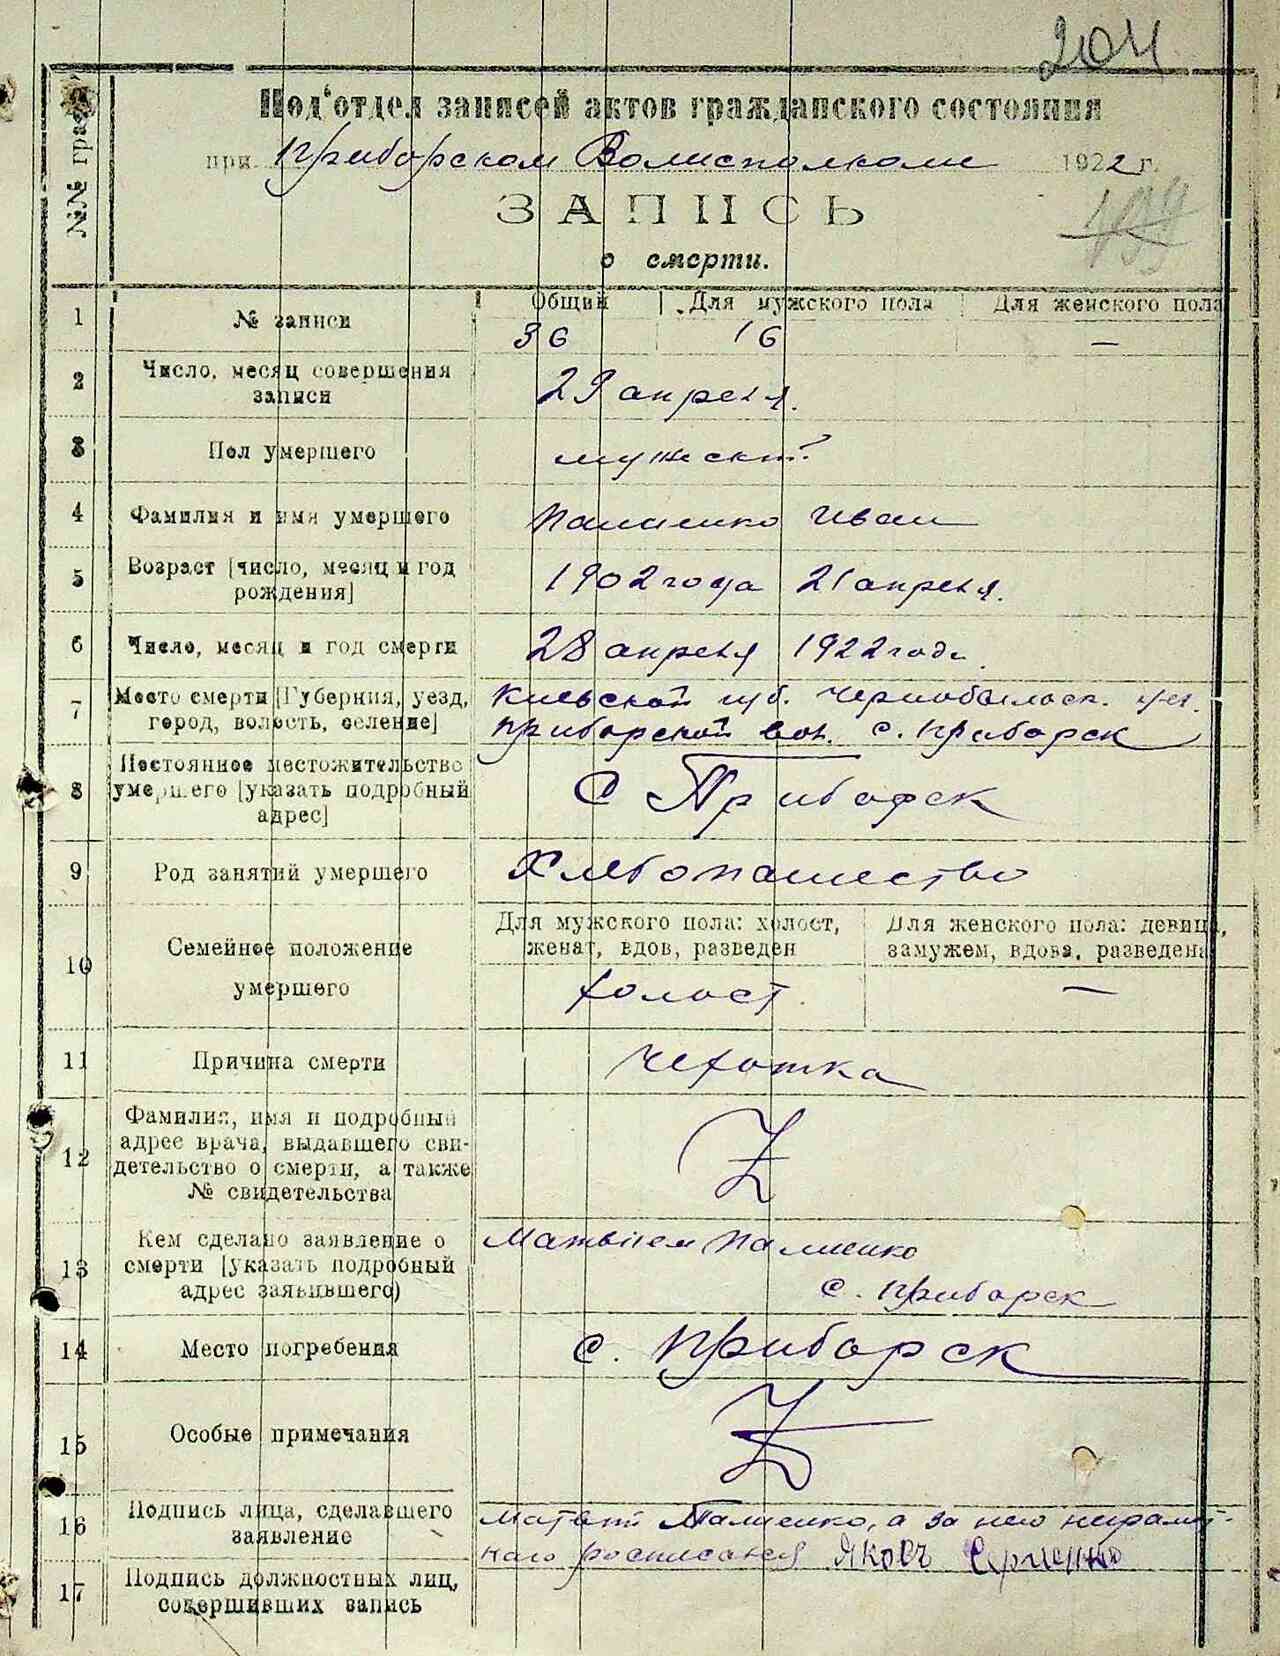 204
Под'отдел записей актов гражданского состояния
при Приборском Волисполкоме 1922 г.
ЗАПИСЬ
о смерти.
№№ граф
1 № записи Общий Для мужского пола Для женского пола
36 16 —
2 Число, месяц совершения
записи
29 апреля.
3 Пол умершего мужской
4 Фамилия и имя умершего Палиенко Иван
5 Возраст [число, месяц и год
рождения]
1902 года 21 апреля.
6 Число, месяц и год смерти 28 апреля 1922 года.
7 Место смерти [Губерния, уезд,
город, волость, селение]
Киевской губ. Чернобыльск. уез.
Приборской вол. с. Приборск
8 Постоянное местожительство
умершего [указать подробный
адрес]
С Приборск
9 Род занятий умершего Хлебопашество
10 Семейное положение
умершего
Для мужского пола: холост,
женат, вдов, разведен
Для женского пола: девица,
замужем, вдова, разведена
холост. —
11 Причина смерти Чехотка
12 Фамилия, имя и подробный
адрес врача, выдавшего сви-
детельство о смерти, а также
№ свидетельства
13 Кем сделано заявление о
смерти [указать подробный
адрес заявившего)
Матвием Палиенко
с. Приборск
14 Место погребения с. Приборск
15 Особые примечания
16 Подпись лица, сделавшего
заявление
Палиенко, а за него неграмот-
ного росписался Яковъ
17 Подпись должностных лиц,
совершивших запись